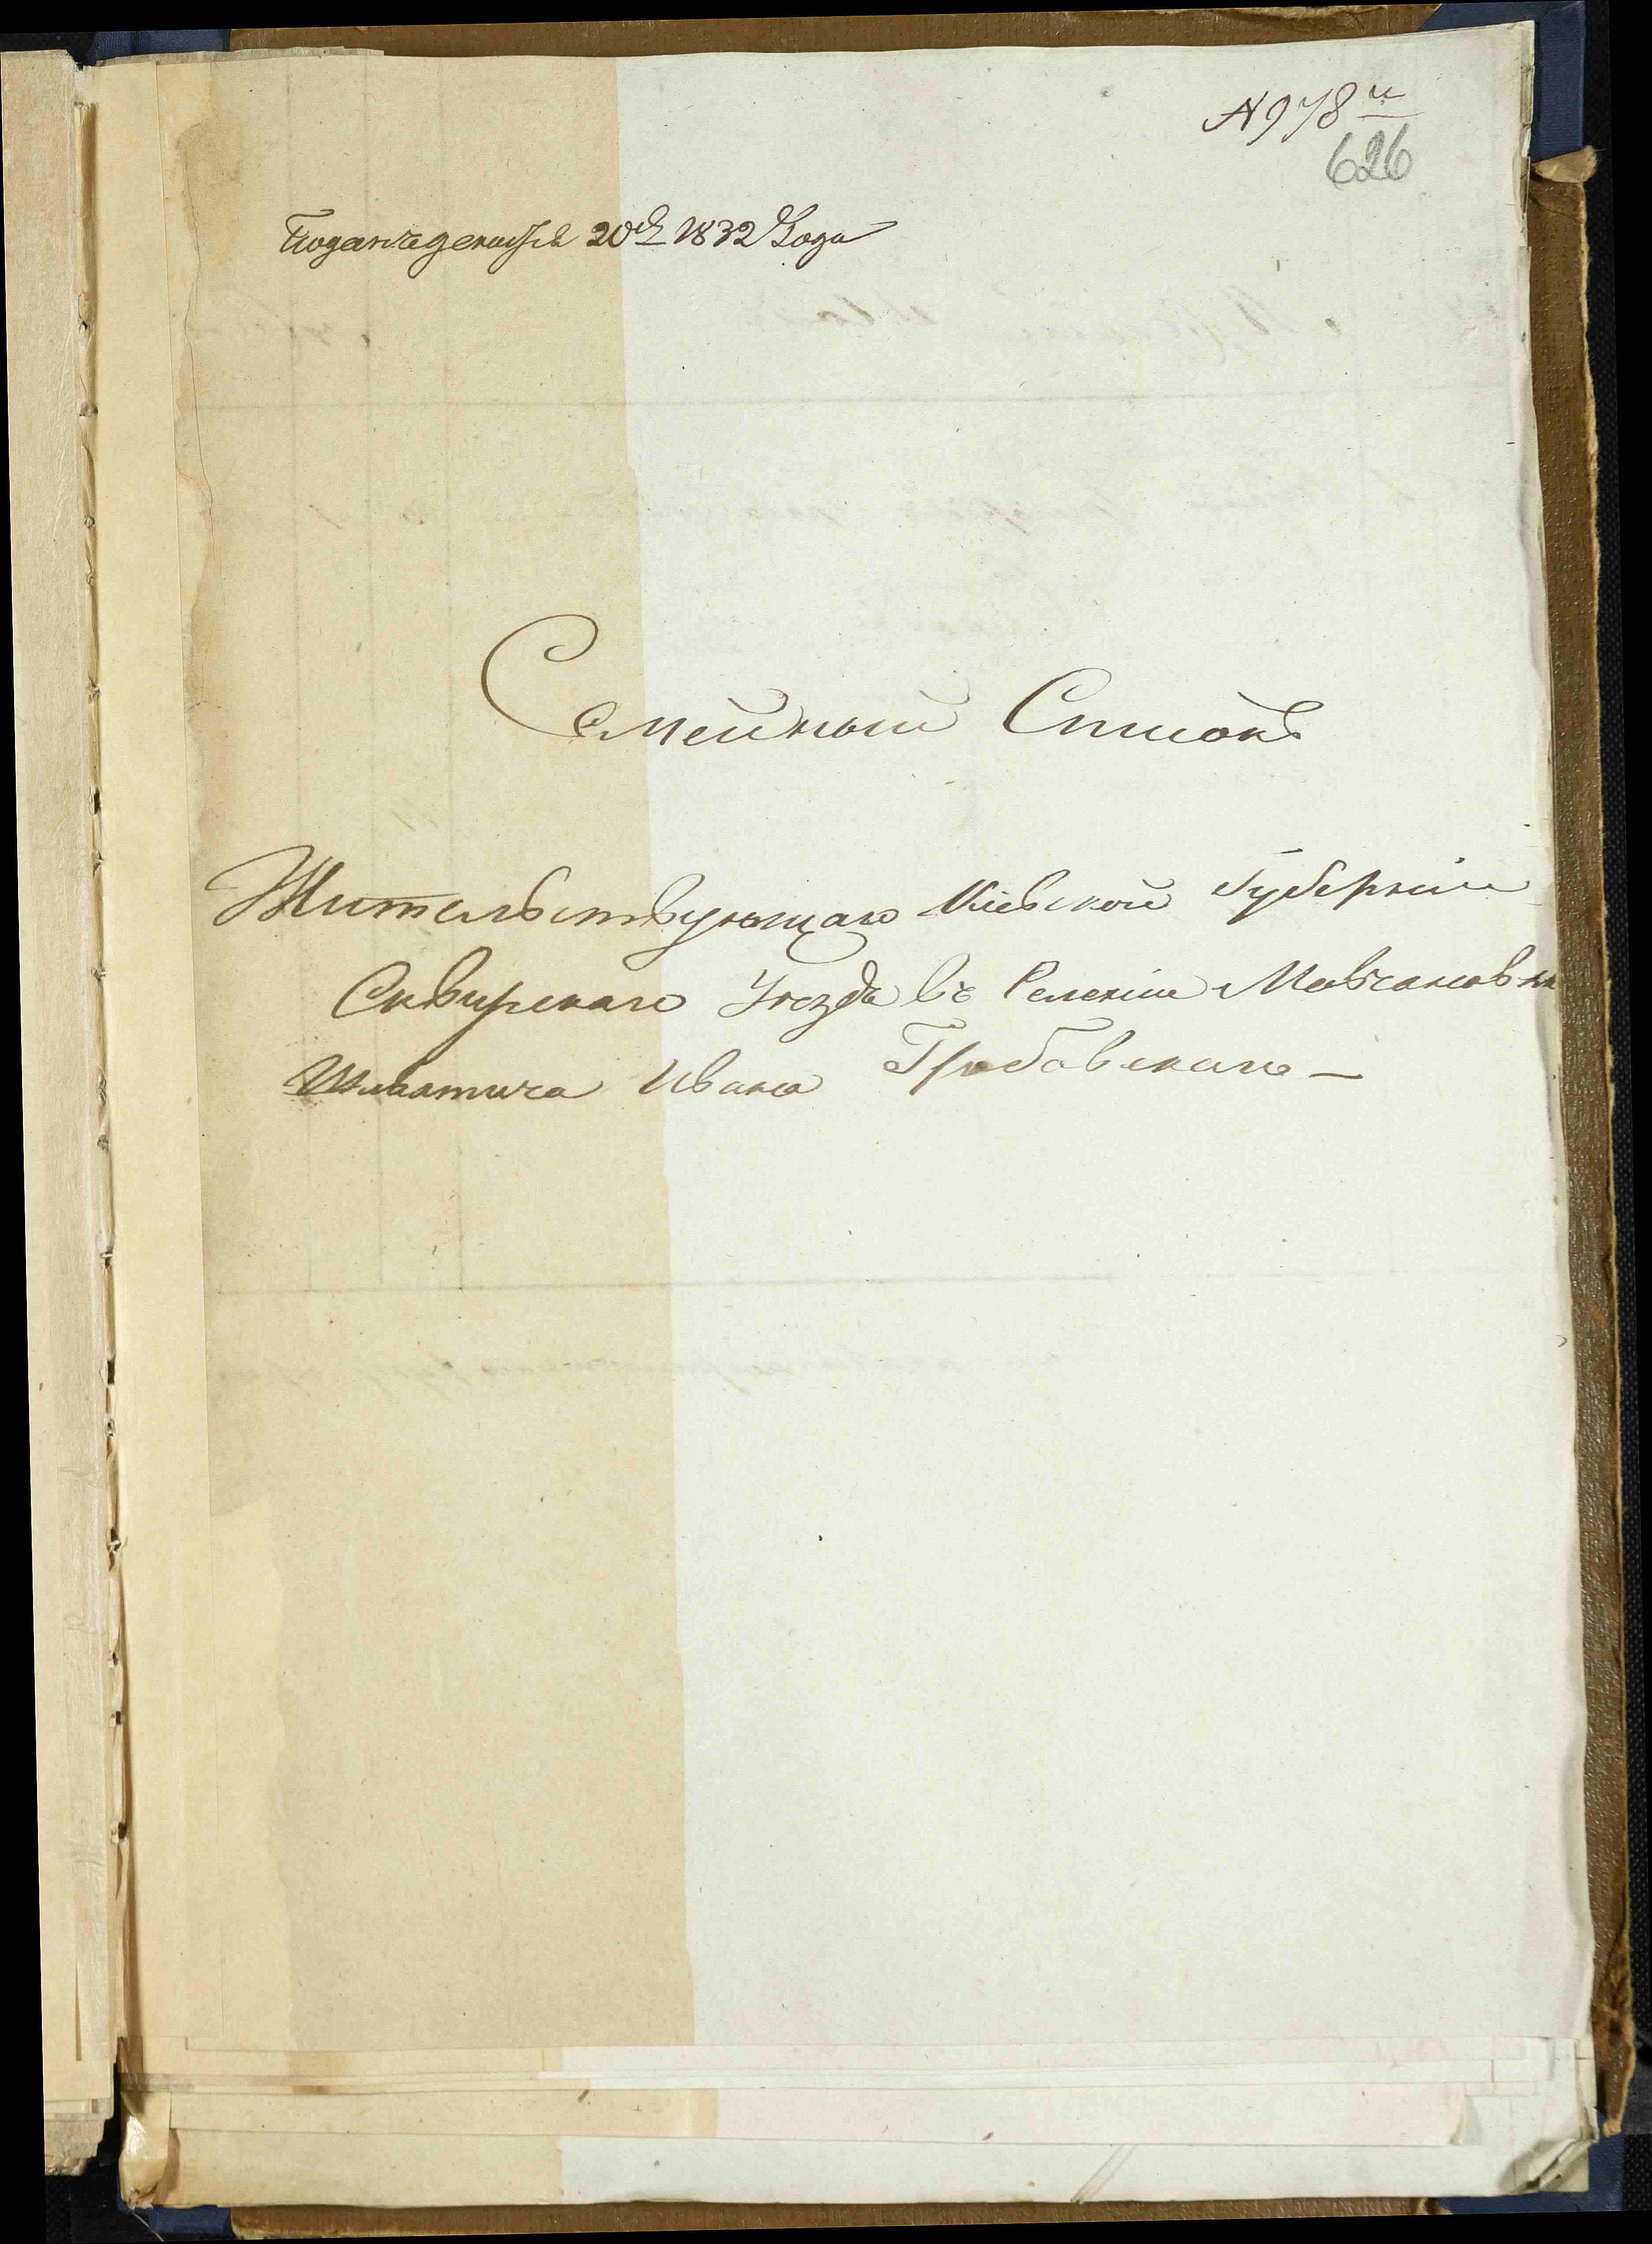 № 978й
626
Поданъ декабря 20го 1832 Года
Семейный Списокъ
Жительствующаго Кіевской Губерніи
Сквирскаго Уезда въ Селеніи Мовчановки
Шляхтича Ивана Грабовскаго —